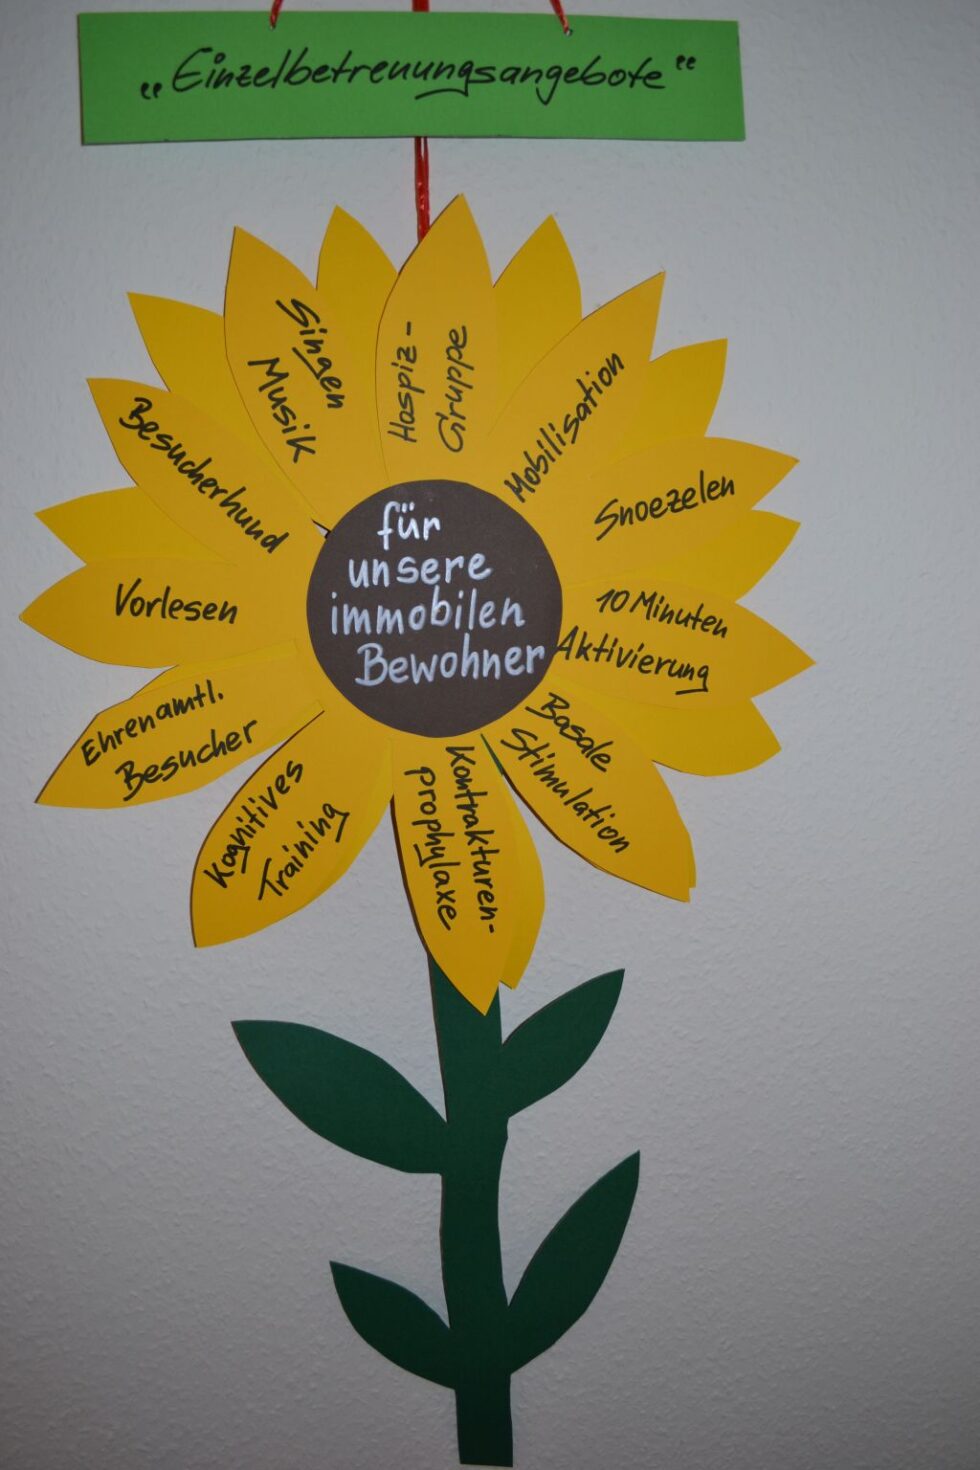 „Einzelbetreuungsangebote“
für
unsere
immobilen
Bewohner
Hospiz-
Gruppe
Mobilisation
Snoezelen
10 Minuten
Aktivierung
Basale
Stimulation
Kontrakturen-
prophylaxe
Kognitives
Training
Ehrenamtl.
Besucher
Vorlesen
Besucherhund
Singen
Musik